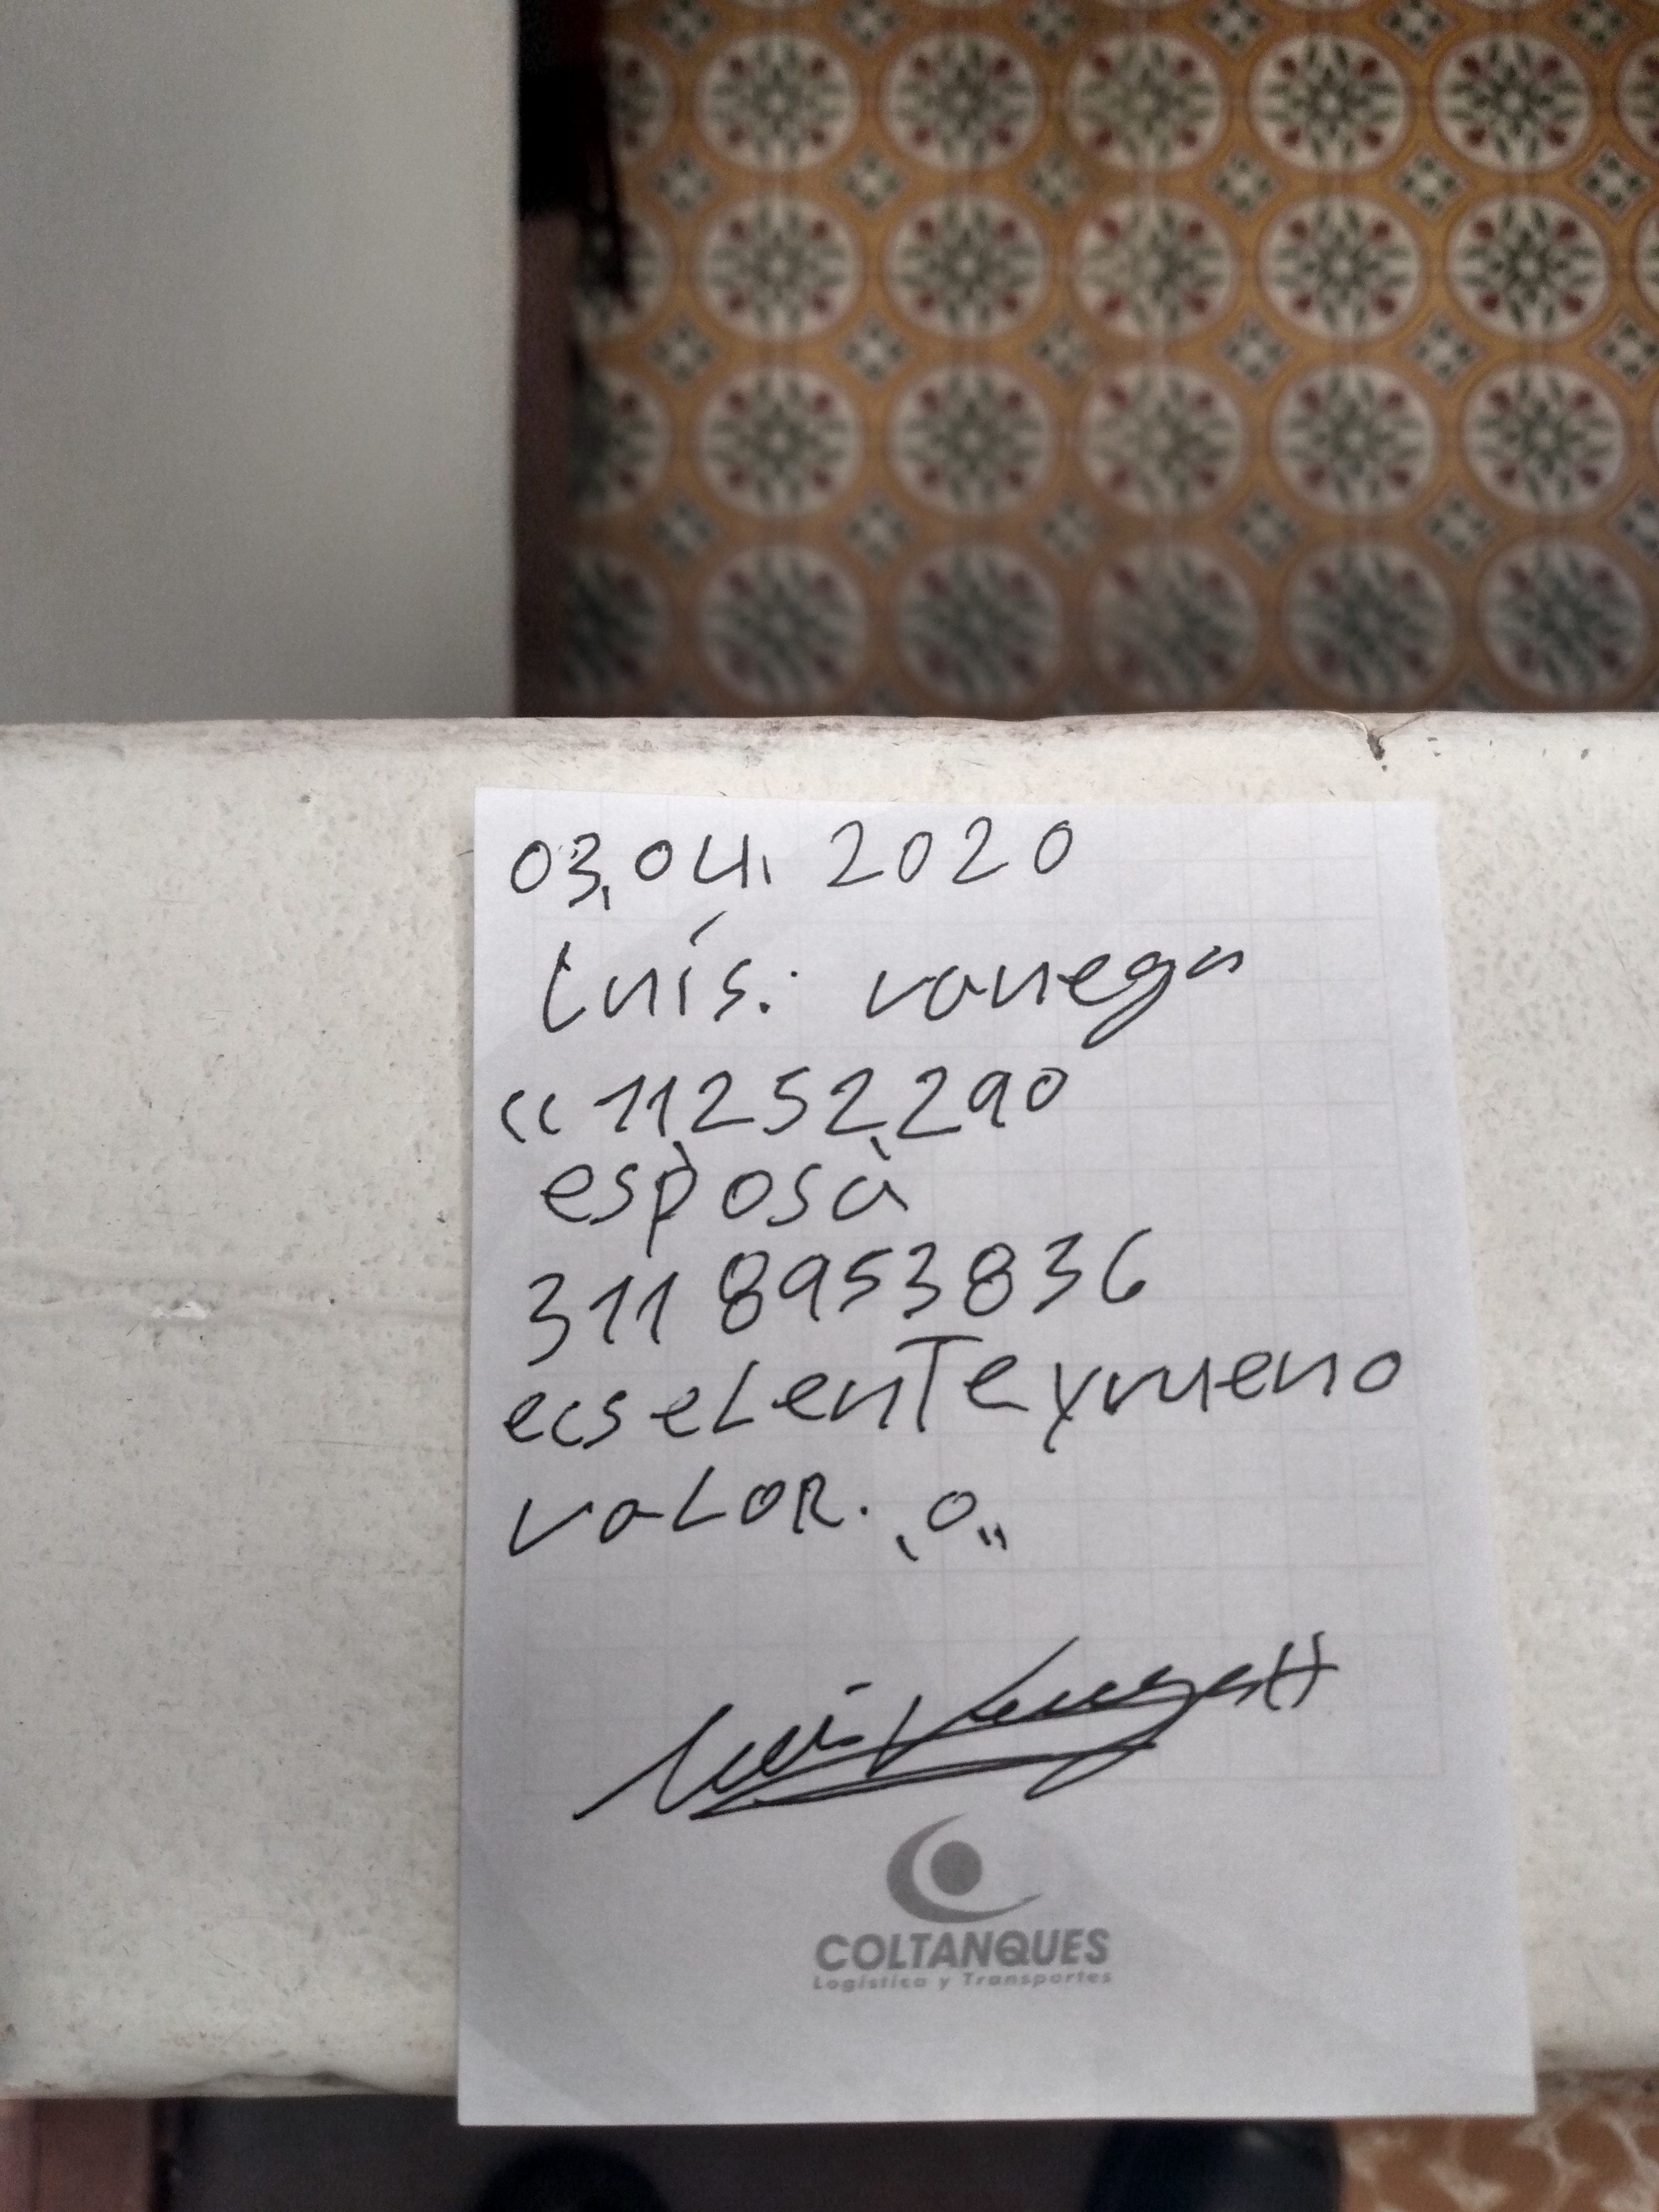 03,04. 2020
Luís: vanega
cc 11252290
esposa
311 8953836
ecseLenTe y vueno
vaLOR.
Luis Vanegas H
COLTANQUES
Logística y Transportes